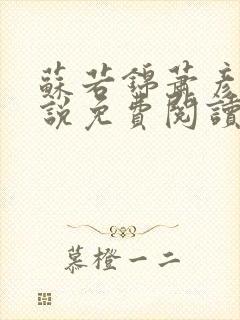 蘇若錦蕭彥
說免費閱讀
慕橙一二